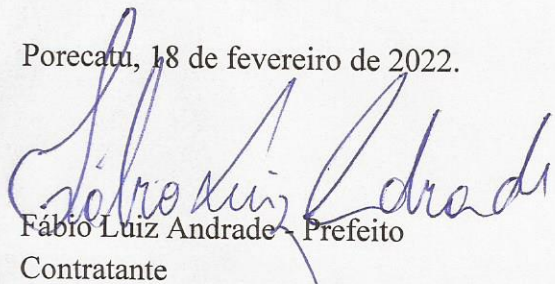 Porecatu, 18 de fevereiro de 2022.
Fábio Luiz Andrade
Fábio Luiz Andrade - Prefeito
Contratante